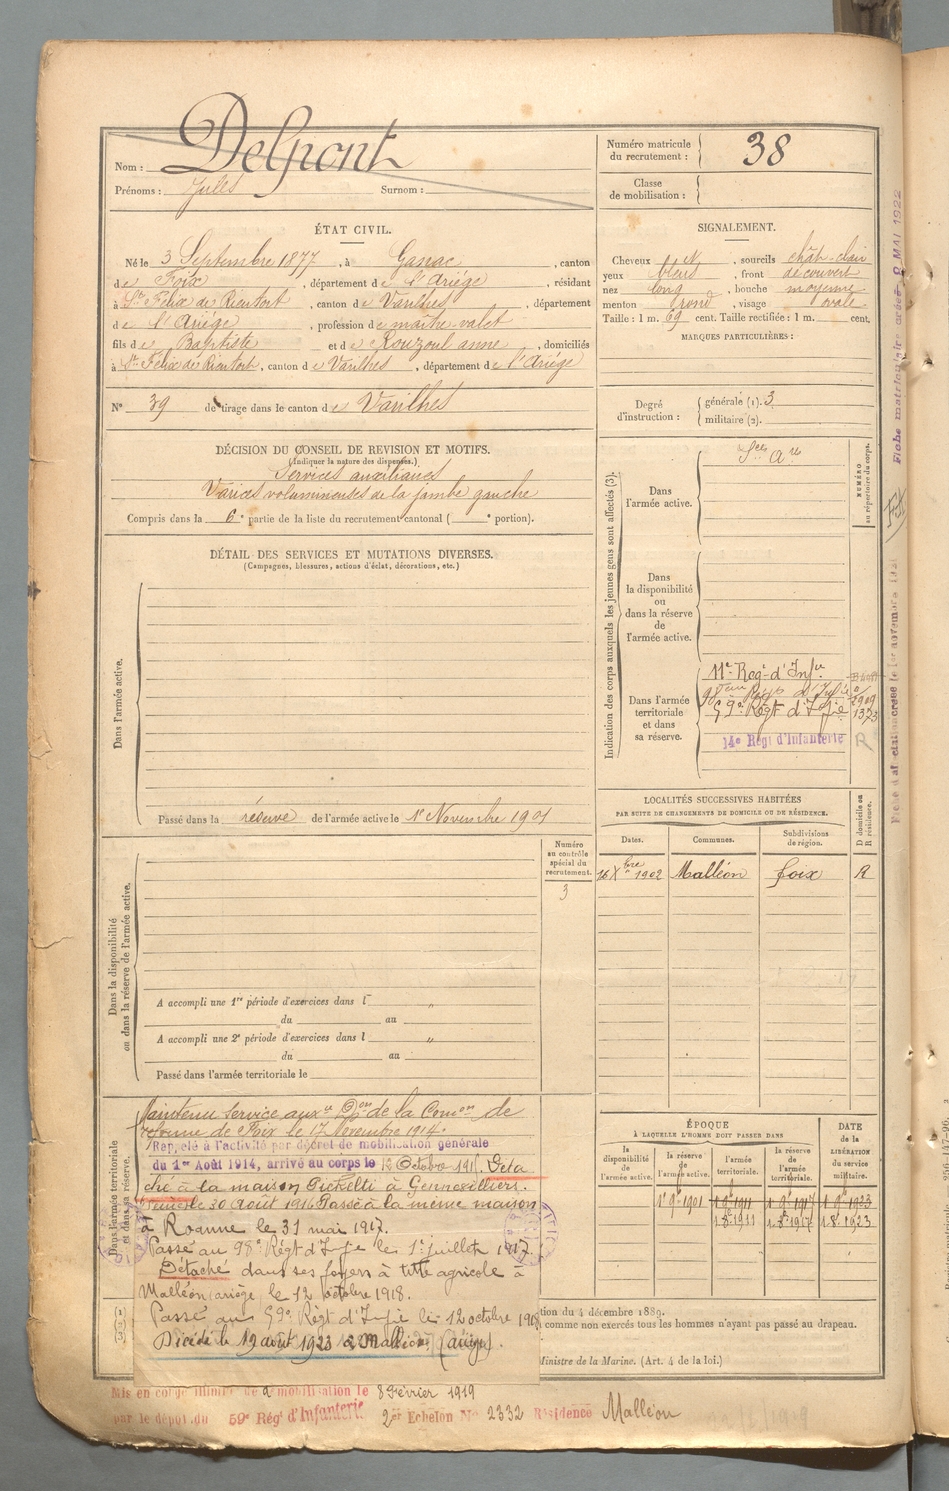 Nom : Delpont
Prénoms : Jules Surnom :
Numéro matricule du recrutement : 38
Classe de mobilisation :
ÉTAT CIVIL.
Né le 3 Septembre 1877, à Ganac, canton
de Foix, département de l'Ariège, résidant
à St Félix de Rieutort, canton de Varilhes, département
de l'Ariège, profession de maître-valet
fils de Baptiste et de Rouzoul anne, domiciliés
à St Félix de Rieutort, canton de Varilhes, département de l'Ariège
N° 39 de tirage dans le canton de Varilhes
SIGNALEMENT.
Cheveux et, sourcils chât-clair
yeux bleus, front découvert
nez long, bouche moyenne
menton rond, visage ovale
Taille : 1 m. 69 cent. Taille rectifiée : 1 m. cent.
MARQUES PARTICULIÈRES :
Degré d'instruction : générale (1). 3
militaire (2).
DÉCISION DU CONSEIL DE REVISION ET MOTIFS.
(Indiquer la nature des dispenses.)
Services auxiliaires
Varices volumineuses de la jambe gauche
Compris dans la 6e partie de la liste du recrutement cantonal ( e portion).
DÉTAIL DES SERVICES ET MUTATIONS DIVERSES.
(Campagnes, blessures, actions d'éclat, décorations, etc.)
Dans l'armée active.
Passé dans la réserve de l'armée active le 1er Novembre 1901
Indication des corps auxquels les jeunes gens sont affectés (3).
NUMÉRO au répertoire du corps.
Dans l'armée active.
Dans la disponibilité ou dans la réserve de l'armée active.
Dans l'armée territoriale et dans sa réserve.
11e Regt d'Infie
98ème Régt d'Infie
59e Régt d'Infie 1373
14e Régt d'Infanterie R
LOCALITÉS SUCCESSIVES HABITÉES
PAR SUITE DE CHANGEMENTS DE DOMICILE OU DE RÉSIDENCE.
Dates. Communes. Subdivisions de région. D domicile ou R résidence.
16 Xbre 1902 Malléon foix R
Dans la disponibilité ou dans la réserve de l'armée active.
Numéro au contrôle spécial du recrutement.
3
A accompli une 1re période d'exercices dans l "
du au
A accompli une 2e période d'exercices dans l "
du au
Passé dans l'armée territoriale le
Dans l'armée territoriale et dans sa réserve.
Maintenu service auxre Don de la Comon de
réforme de Foix le 17 Novembre 1914.
Rappelé à l'activité par décret de mobilisation générale
du 1er Août 1914, arrivé au corps le Octobre 191 Déta
ché à la maison à Gennevilliers.
le 30 août 1916 Passé à la même maison
à Roanne le 31 mai 1917.
Passé au 98e Régt d'Infie le 1er juillet 1917.
Détaché dans ses foyers à titre agricole à
Malléon ariège, le 12 octobre 1918.
Passé au 59e Régt d'Infie le 12 octobre 1918
Décédé le 19 août 1923 à Malléon (ariège).
ÉPOQUE
À LAQUELLE L'HOMME DOIT PASSER DANS
la disponibilité de l'armée active. la réserve de l'armée active. l'armée territoriale. la réserve de l'armée territoriale.
DATE de la LIBÉRATION du service militaire.
1er 9e 1901
1.8.1911 1.8.1917 1.8.1923
(1) (2) (3)
tion du 4 décembre 1889.
comme non exercés tous les hommes n'ayant pas passé au drapeau.
Ministre de la Marine. (Art. 4 de la loi.)
Mis en congé illimité de démobilisation le 8 Février 1919
par le dépôt du 59e Régt d'Infanterie 2er Echelon No 2332 Résidence Malléon
Fiche matriculaire créée 9 MAI 1922